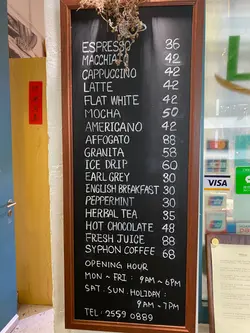 ESPRESSO 36
MACCHIATO 42
CAPPUCCINO 42
LATTE 42
FLAT WHITE 42
MOCHA 50
AMERICANO 42
AFFOGATO 88
GRANITA 58
ICE DRIP 60
EARL GREY 30
ENGLISH BREAKFAST 30
PEPPERMINT 30
HERBAL TEA 35
HOT CHOCOLATE 48
FRESH JUICE 88
SYPHON COFFEE 68
OPENING HOUR
MON ~ FRI : 9AM ~ 6PM
SAT. SUN. HOLIDAY :
9AM ~ 7PM
TEL : 2559 0889
VISA